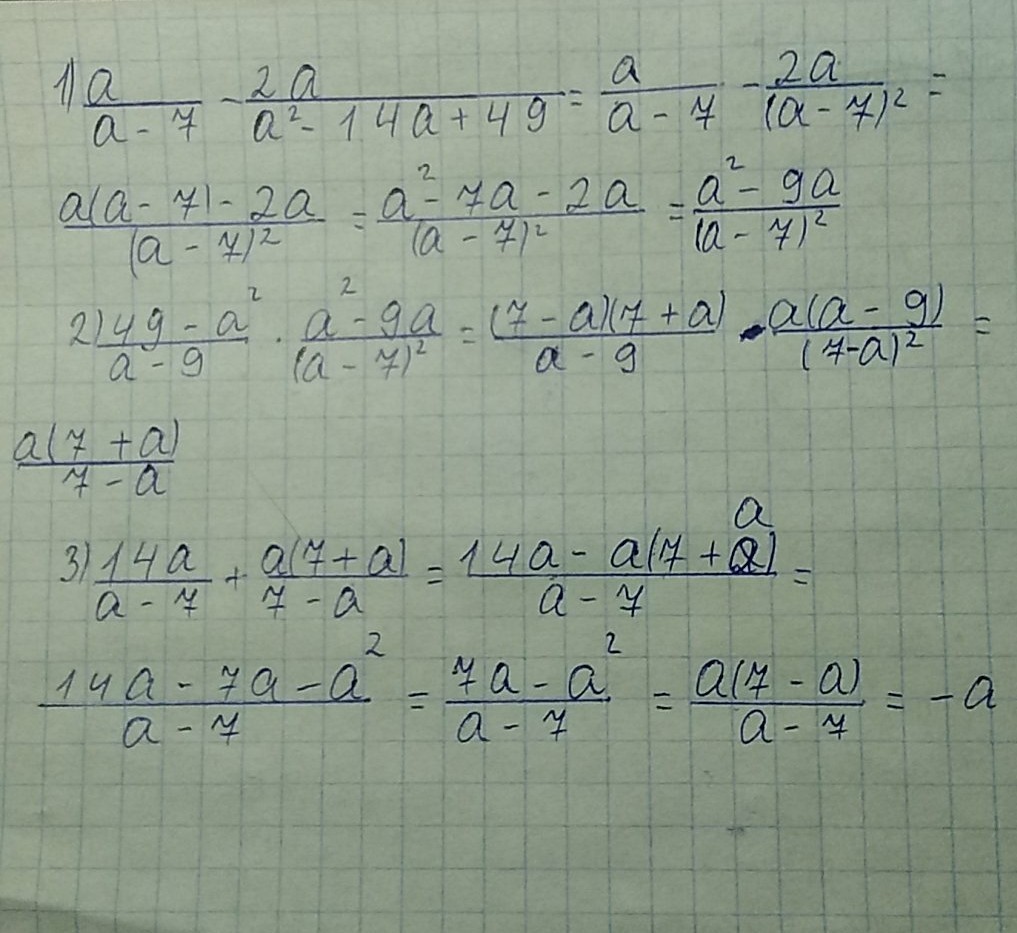 1) a/(a - 7) - 2a/(a² - 14a + 49) = a/(a - 7) - 2a/(a - 7)² =
(a(a - 7) - 2a)/(a - 7)² = (a² - 7a - 2a)/(a - 7)² = (a² - 9a)/(a - 7)²
2) (49 - a²)/(a - 9) · (a² - 9a)/(a - 7)² = ((7 - a)(7 + a))/(a - 9) · (a(a - 9))/(7-a)² =
(a(7 + a))/(7 - a)
3) 14a/(a - 7) + (a(7 + a))/(7 - a) = (14a - a(7 + a))/(a - 7) =
(14a - 7a - a²)/(a - 7) = (7a - a²)/(a - 7) = (a(7 - a))/(a - 7) = -a